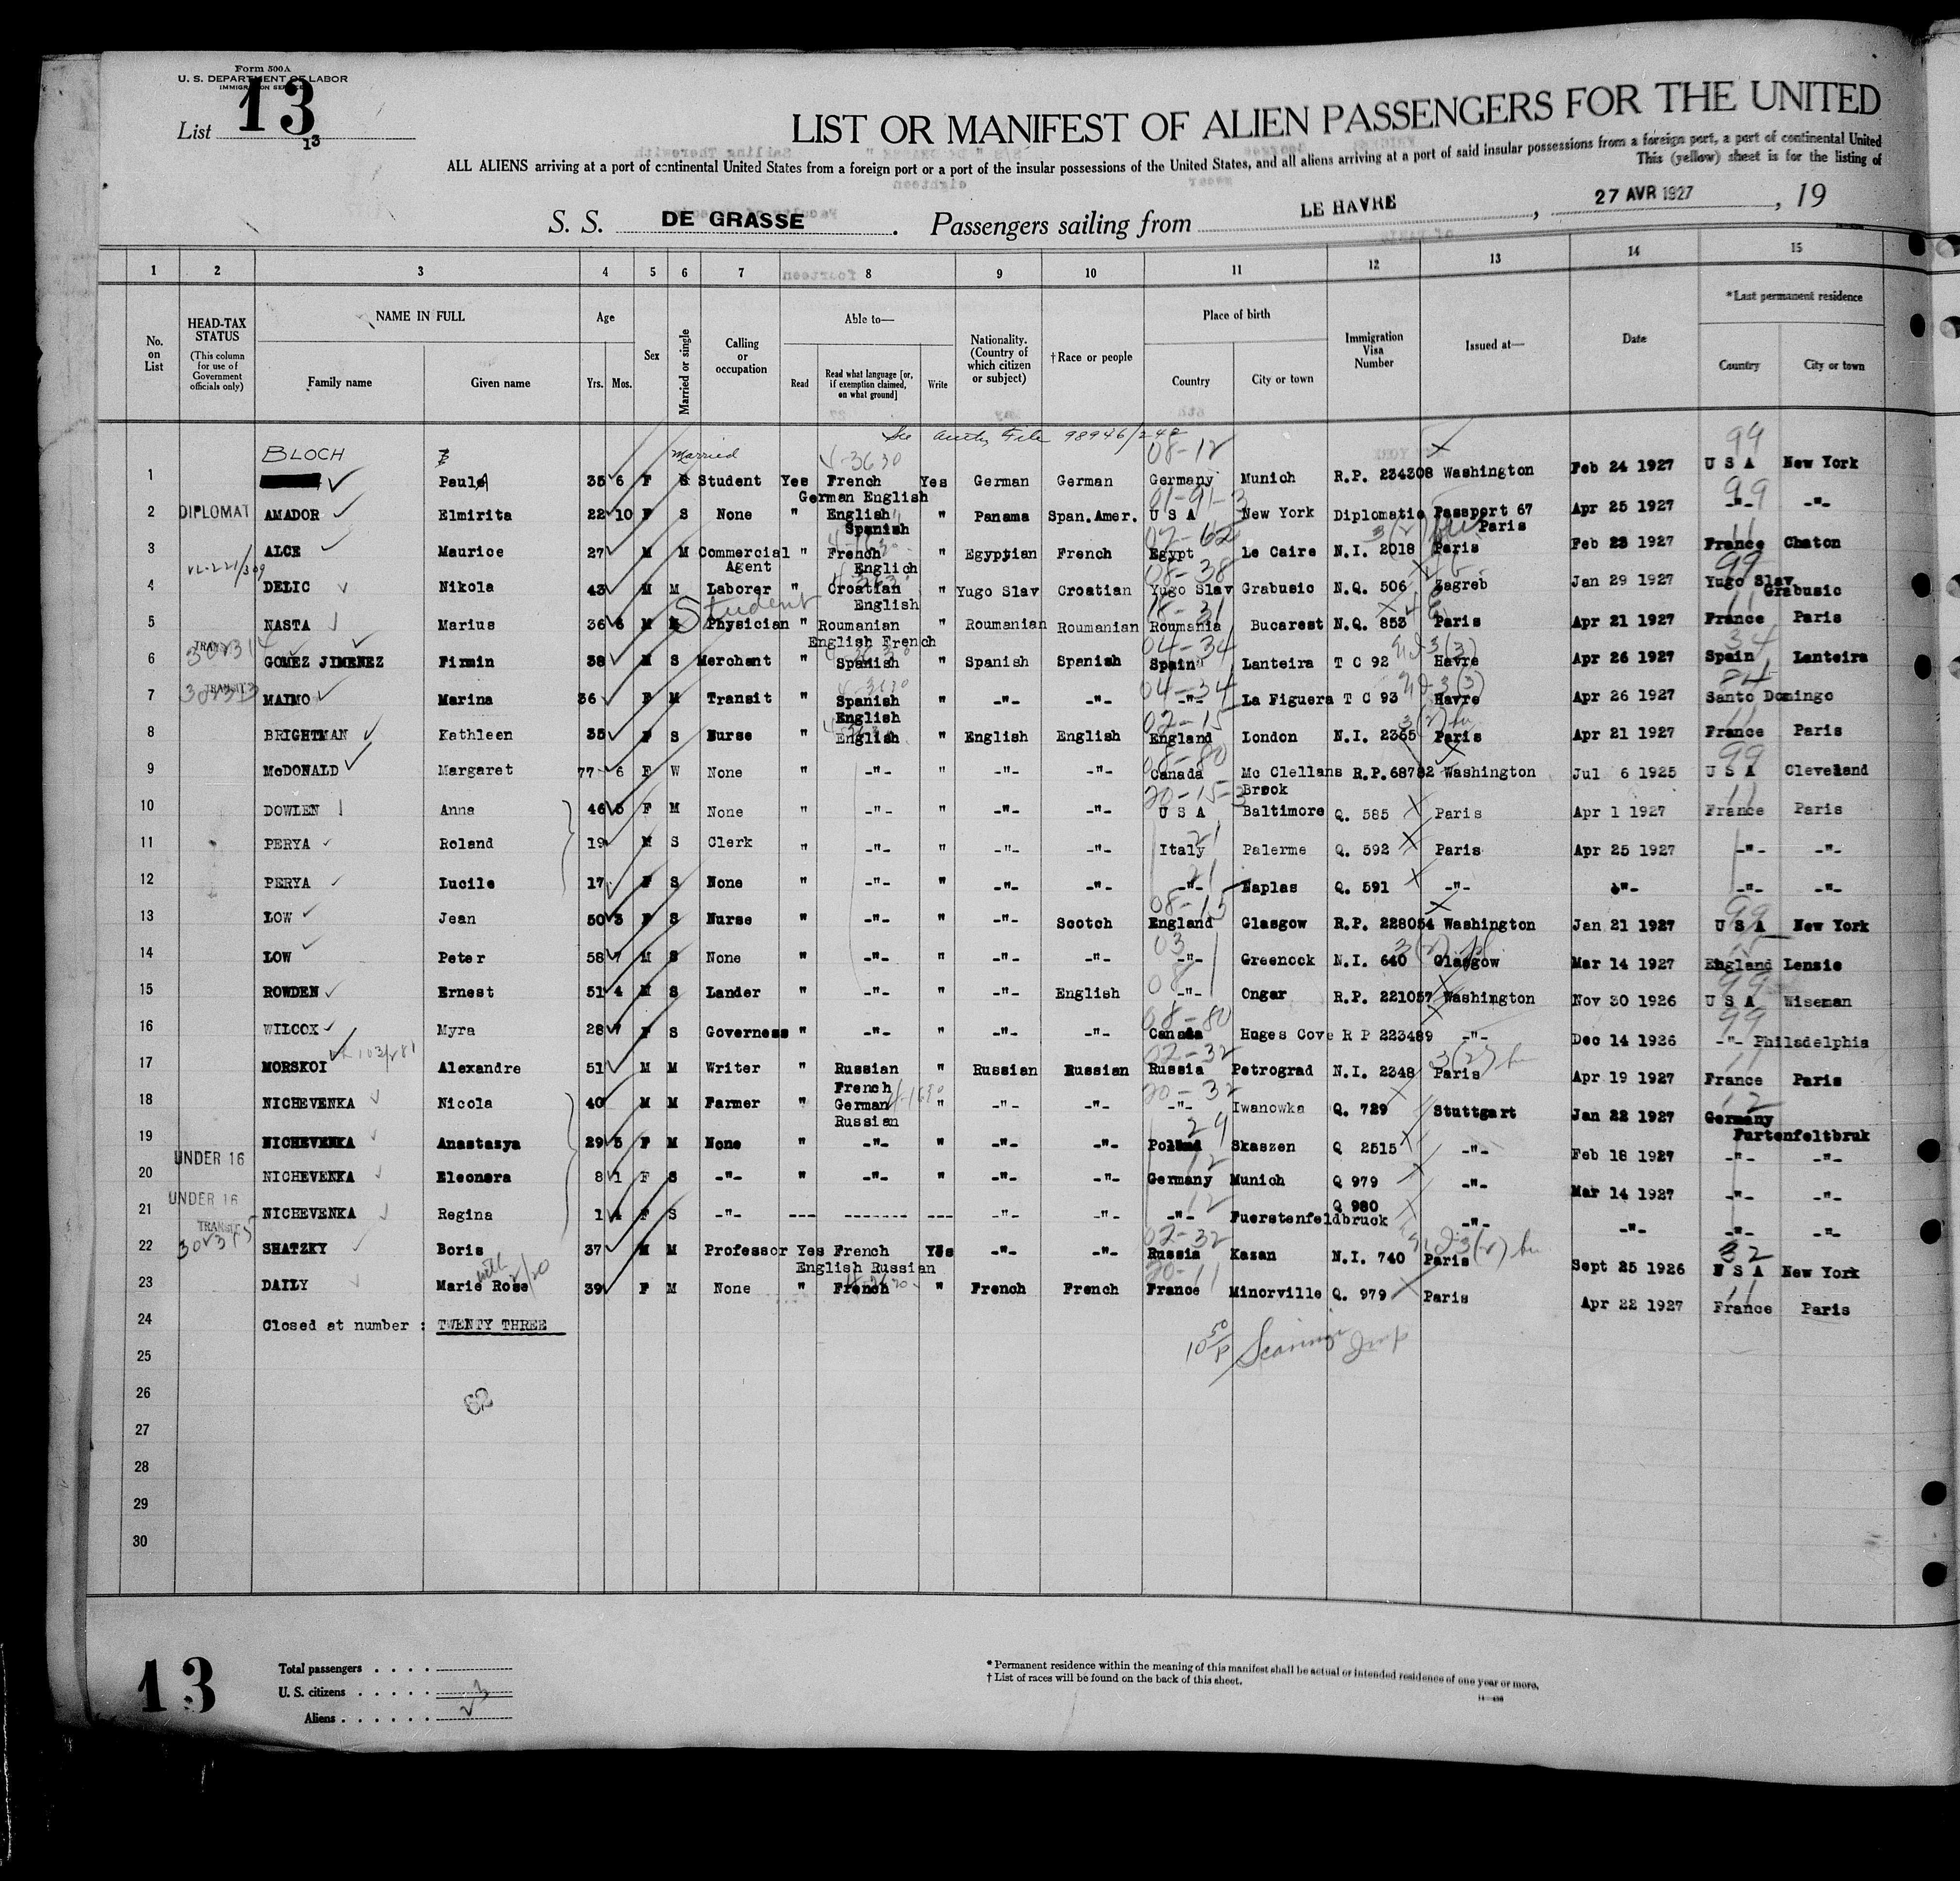 Form 500A
U. S. DEPARTMENT OF LABOR
IMMIGRATION SERVICE
List 13
13
LIST OR MANIFEST OF ALIEN PASSENGERS FOR THE UNITED
ALL ALIENS arriving at a port of continental United States from a foreign port or a port of the insular possessions of the United States, and all aliens arriving at a port of said insular possessions from a foreign port, a port of continental United
This (yellow) sheet is for the listing of
S. S. DE GRASSE. Passengers sailing from LE HAVRE, 27 AVR 1927, 19
1 2 3 4 5 6 7 8 9 10 11 12 13 14 15
No. on List
HEAD-TAX STATUS (This column for use of Government officials only)
NAME IN FULL
Family name Given name
Age Yrs. Mos.
Sex
Married or single
Calling or occupation
Able to—
Read Read what language [or, if exemption claimed, on what ground] Write
Nationality. (Country of which citizen or subject)
†Race or people
Place of birth
Country City or town
Immigration Visa Number
Issued at—
Date
*Last permanent residence
Country City or town
See Auth File 98946/242
BLOCH Married 4-3630 08-12 99
1 Paula 35 6 F S Student Yes French Yes German German Germany Munich R.P. 234308 Washington Feb 24 1927 U S A New York
German English 01-91-3 99
2 DIPLOMAT AMADOR Elmirita 22 10 F S None " English " Panama Span.Amer. U S A New York Diplomatic Passport 67 Apr 25 1927 -"- -"-
Spanish Paris
3 ALCE Maurice 27 M M Commercial " French " Egyptian French Egypt Le Caire N.I. 2018 Paris Feb 23 1927 France Chaton
Agent Englich 08-38 99
4 DELIC Nikola 43 M M Laborer " Croatian " Yugo Slav Croatian Yugo Slav Grabusic N.Q. 506 Zagreb Jan 29 1927 Yugo Slav Grabusic
Student English
5 NASTA Marius 36 6 M Physician " Roumanian " Roumanian Roumanian Roumania Bucarest N.Q. 853 Paris Apr 21 1927 France Paris
TRANSIT English French 04-34 34
6 GOMEZ JIMENEZ Firmin 38 M S Merchant " Spanish " Spanish Spanish Spain Lanteira T C 92 Havre Apr 26 1927 Spain Lanteira
TRANSIT 04-34
7 MAIMO Marina 36 F M Transit " Spanish " -"- -"- -"- La Figuera T C 93 Havre Apr 26 1927 Santo Domingo
English 02-15 11
8 BRIGHTMAN Kathleen 35 F S Nurse " English " English English England London N.I. 2365 Paris Apr 21 1927 France Paris
08-80 99
9 McDONALD Margaret 77 6 F W None " -"- " -"- -"- Canada Mc Clellans R.P.68782 Washington Jul 6 1925 U S A Cleveland
20-15-3 Brook 11
10 DOWLEN Anna 46 5 F M None " -"- " -"- -"- U S A Baltimore Q. 585 Paris Apr 1 1927 France Paris
21
11 PERYA Roland 19 M S Clerk " -"- " -"- -"- Italy Palerme Q. 592 Paris Apr 25 1927 -"- -"-
21
12 PERYA Lucile 17 F S None " -"- " -"- -"- -"- Naplas Q. 591 -"- -"- -"- -"-
08-15 99
13 LOW Jean 50 3 F S Nurse " -"- " -"- Scotch England Glasgow R.P. 228054 Washington Jan 21 1927 U S A New York
03
14 LOW Peter 58 7 M S None " -"- " -"- -"- -"- Greenock N.I. 640 Glasgow Mar 14 1927 England Lensie
08 99
15 ROWDEN Ernest 51 4 M S Lander " -"- " -"- English -"- Ongar R.P. 221057 Washington Nov 30 1926 U S A Wiseman
08-80 99
16 WILCOX Myra 28 7 F S Governess " -"- " -"- -"- Canada Huges Cove R P 223489 -"- Dec 14 1926 -"- Philadelphia
02-32 11
17 MORSKOI Alexandre 51 M M Writer " Russian " Russian Russian Russia Petrograd N.I. 2348 Paris Apr 19 1927 France Paris
French 20-32 12
18 NICHEVENKA Nicola 40 M M Farmer " German " -"- -"- -"- Iwanowka Q. 729 Stuttgart Jan 22 1927 Germany
Russian 29 Furtenfeltbruk
19 NICHEVENKA Anastasya 29 5 F M None " -"- " -"- -"- Poland Skaszen Q 2515 -"- Feb 18 1927 -"- -"-
UNDER 16 12
20 NICHEVENKA Eleonora 8 1 F S -"- " -"- " -"- -"- Germany Munich Q 979 -"- Mar 14 1927 -"- -"-
UNDER 16 12 Q 980
21 NICHEVENKA Regina 1 4 F S -"- --- ------- --- -"- -"- -"- Fuerstenfeldbruck -"- -"- -"- -"-
TRANSIT 02-32 32
22 SHATZKY Boris 37 M M Professor Yes French Yes -"- -"- Russia Kazan N.I. 740 Paris Sept 25 1926 U S A New York
English Russian 20-11 11
23 DAILY Marie Rose 39 F M None " French " French French France Minorville Q. 979 Paris Apr 22 1927 France Paris
24 Closed at number : TWENTY THREE
25
26
27
28
29
30
13
Total passengers . . . .
U. S. citizens . . . . .
Aliens . . . . . . 23
* Permanent residence within the meaning of this manifest shall be actual or intended residence of one year or more.
† List of races will be found on the back of this sheet.